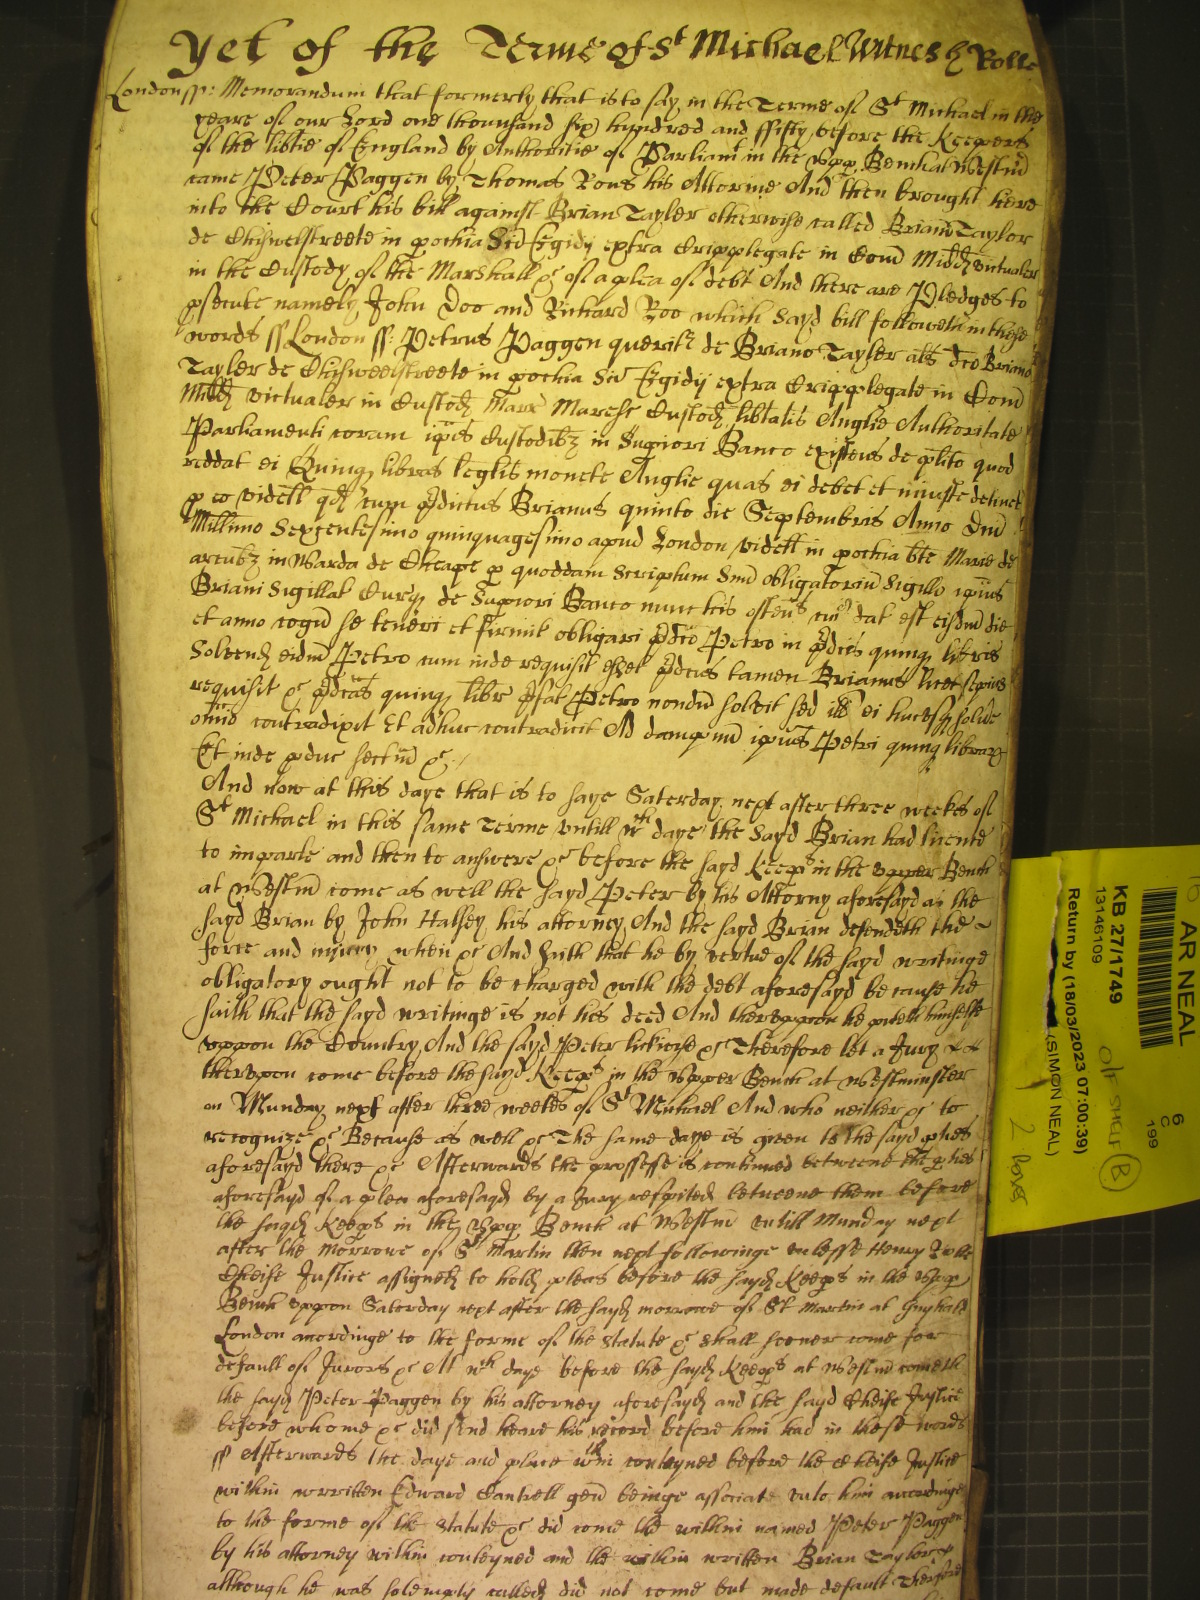 Yet of the Terme of St Michael Witnes H Rolle
London ss: Memorandum that formerly that is to say in the Terme of St Michael in the
yeare of our Lord one thousand six hundred and fifty before the Keepers
of the libtie of England by Authoritie of Parliamt in the Upp Bench at Westm
came Peter Paggen by Thomas Rous his Attornie And then brought here
into the Court his bill against Brian Tayler otherwise called Brian Taylor
de Chiswelstreete in pochia Sci Egidij extra Cripplegate in Com Midd victualer
in the Custody of the Marshall &c of a plea of debt And there are Pledges to
psecute namely John Doo and Richard Roo which sayd bill followeth in these
words ss London ss: Petrus Paggen queritr de Briano Tayler als dco Briano
Tayler de Chisweelstreete in pochia Sci Egidij extra Cripplegate in Com
Midd victualer in Custod Marr Maresc Custod libtatis Anglie Authoritate
Parliamenti coram ipis Custodibz in Supiori Banco existens de plito quod
reddat ei Quinqz libras leglis monete Anglie quas ei debet et iniuste detinet
p eo videlt qd cum pdictus Brianus quinto die Septembris Anno Dni
Millimo Sexcentesimo quinquagesimo apud London videlt in pochia bte Marie de
arcubz in Warda de Cheape p quoddam scriptum suu obligatoriu Sigillo ipius
Briani Sigillat Curqz de Supiori Banco nunc hic ostens cuius dat est eisdm die
et anno cogn se teneri et firmit obligari pdco Petro in pdcis quinqz libris
Solvend eidm Petro cum inde requisit esset pdcus tamen Brianus licet sepius
requisit &c pdcas quinqz libr pfat Petro nondu solvit sed ill ei hucusqz solvere
omio contradixit Et adhuc contradicit Ad dampnu ipius Petri quinqz librarz
Et inde pduc sectam &c
And now at this daye that is to saye Saterday next after three weekes of
St Michael in this same Terme untill wch daye the Sayd Brian had licence
to imparle and then to answere &c before the sayd Keeps in the Upper Bench
at Westm come as well the sayd Peter by his Attorny aforesayd as the
sayd Brian by John Halsey his attorney And the sayd Brian defendeth the
force and iniury when &c And Saith that he by vertue of the sayd writinge
obligatory ought not to be charged with the debt aforesayd because he
saith that the sayd writinge is not his deed And thereuppon he putteth himselfe
uppon the Country And the sayd Peter likewise &c Therefore let a Jury
thereupon come before the sayd Keeps in the Upper Bench at Westminster
on Munday next after three weekes of St Michael And who neither &c to
recognize &c Because as well &c The same daye is given to the sayd pties
aforesayd there &c Afterwards the processe is continued betweene the pties
aforesayd of a plea aforesayd by a Jury respited betweene them before
the sayd Keeps in the Upp Bench at Westm untill Munday next
after the Morrowe of St Martin then next followinge unlesse Henry Rolle
Cheife Justice assigned to hold pleas before the sayd Keeps in the Upp
Bench uppon Saterday next after the sayd morrowe of St Martin at Guyhald
London accordinge to the forme of the statute &c shall sooner come for
default of Jurors &c At wch daye before the sayd Keeps at Westm cometh
the sayd Peter Paggen by his attorney aforesayd and the sayd Cheife Justice
before whome &c did send heare his record before him had in these words
ss Afterwards the daye and place wthin conteyned before the Cheife Justice
within written Edward Cantrell gen beinge associate unto him accordinge
to the forme of the statute &c did come the within named Peter Paggen
by his attorney within conteyned and the within written Brian Tayler
although he was solemnly called did not come but made default Therefore
AR NEAL
KB 27/1749
13146109
Return by (18/03/2023 07:00:39)
(SIMON NEAL)
6
C
199
B
2 boxes